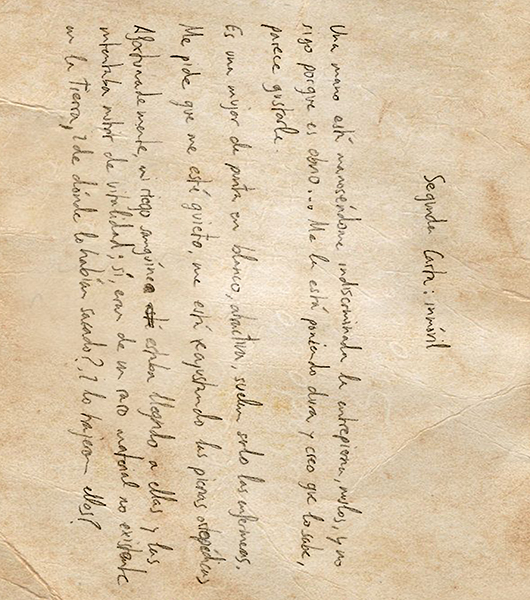 Segunda Carta: inmóvil
Una mano está manoseándome indiscriminada la entrepierna, muslos, y no
sigo porque es obvio... Me la está poniendo dura y creo que lo sabe,
parece gustarle.
Es una mujer de punta en blanco, atractiva, suelen serlo las enfermeras.
Me pide que me esté quieto, me está reajustando las piernas ortopédicas
Afortunadamente, mi riego sanguíneo estaba llegando a ellas y las
intentaba nutrir de vitalidad; sí, eran de un raro material no existente
en la Tierra, ¿de dónde lo habían sacado?, ¿lo trajeron ellos?